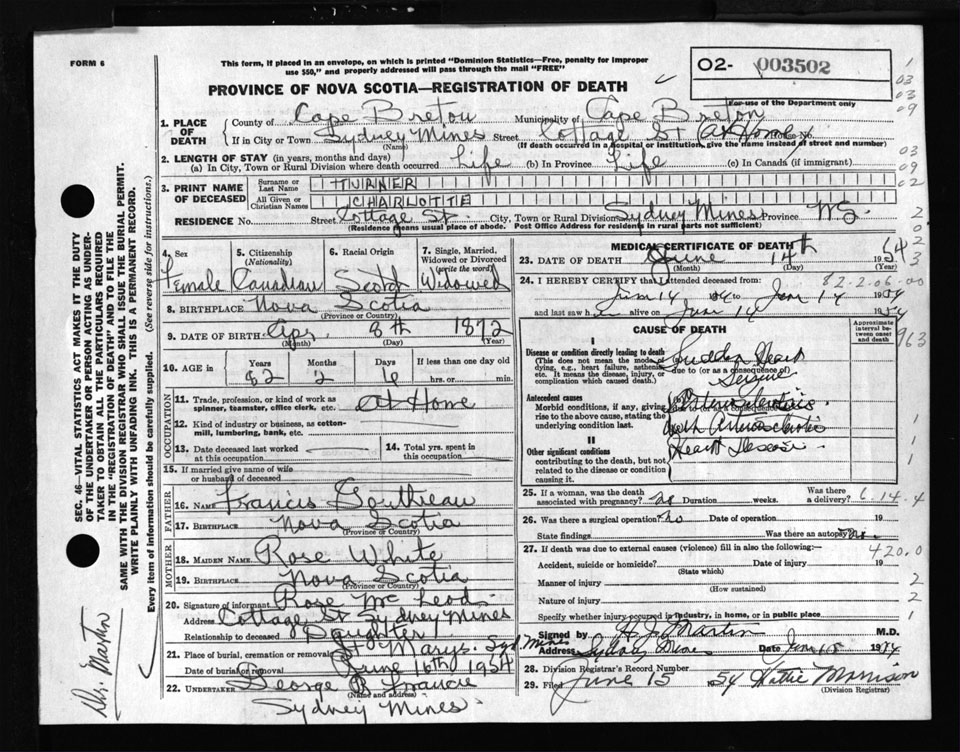 FORM 6
This form, if placed in an envelope, on which is printed "Dominion Statistics—Free, penalty for improper
use $50," and properly addressed will pass through the mail "FREE"
O2- 003502
For use of the Department only
PROVINCE OF NOVA SCOTIA—REGISTRATION OF DEATH
1. PLACE OF DEATH
County of Cape Breton Municipality of Cape Breton
If in City or Town Sydney Mines Street Cottage St (At Home) No.
(Name) (If death occurred in a hospital or institution, give the name instead of street and number)
2. LENGTH OF STAY (in years, months and days)
(a) In City, Town or Rural Division where death occurred Life (b) In Province Life (c) In Canada (if immigrant)
3. PRINT NAME OF DECEASED
Surname or Last Name TURNER
All Given or Christian Names CHARLOTTE
RESIDENCE No. Street Cottage St. City, Town or Rural Division Sydney Mines Province N.S.
(Residence means usual place of abode. Post Office Address for residents in rural parts not sufficient)
4. Sex Female
5. Citizenship (Nationality) Canadian
6. Racial Origin Scotch
7. Single, Married, Widowed or Divorced (write the word) Widowed
8. BIRTHPLACE Nova Scotia
(Province or Country)
9. DATE OF BIRTH Apr 8th 1872
(Month) (Day) (Year)
10. AGE in Years 82 Months 2 Days 6 If less than one day old
hrs. or min.
OCCUPATION
11. Trade, profession, or kind of work as spinner, teamster, office clerk, etc. At Home
12. Kind of industry or business, as cotton-mill, lumbering, bank, etc.
13. Date deceased last worked at this occupation
14. Total yrs. spent in this occupation
15. If married give name of wife or husband of deceased
FATHER
16. NAME Francis
17. BIRTHPLACE Nova Scotia
(Province or Country)
MOTHER
18. MAIDEN NAME Rose White
19. BIRTHPLACE Nova Scotia
(Province or Country)
20. Signature of informant Rose McLeod
Address Cottage St Sydney Mines
Relationship to deceased Daughter
21. Place of burial, cremation or removal St Marys. Syd Mines
Date of burial or removal June 16th 1954
22. UNDERTAKER George B Francis
(Name and address)
Sydney Mines.
MEDICAL CERTIFICATE OF DEATH
23. DATE OF DEATH June 14th 1954
(Month) (Day) (Year)
82-2-06-00
24. I HEREBY CERTIFY that I attended deceased from
June 14 1954 to June 14 1954
and last saw h alive on June 14 1954
CAUSE OF DEATH
Approximate interval between onset and death
I
Disease or condition directly leading to death
(This does not mean the mode of dying, e.g., heart failure, asthenia, etc. It means the disease, injury, or complication which caused death.)
Sudden Heart
due to (or as a consequence of)
Seizure
Antecedent causes
Morbid conditions, if any, giving rise to the above cause, stating the underlying condition last.
due to (or as a consequence of)
Arteriosclerosis
with Arteriosclerotic
Heart Disease
II
Other significant conditions
contributing to the death, but not related to the disease or condition causing it.
25. If a woman, was the death associated with pregnancy? no Duration weeks. Was there a delivery?
6.14.4
26. Was there a surgical operation? no Date of operation 19
State findings Was there an autopsy? no.
27. If death was due to external causes (violence) fill in also the following:—
420.0
Accident, suicide or homicide? Date of injury 19
(State which)
Manner of injury
(How sustained)
Nature of injury
Specify whether injury occurred in industry, in home, or in public place
Signed by Martin M.D.
Address Sydney Mines Date June 15 1954
28. Division Registrar's Record Number
29. Filed June 15 1954 Hattie Morrison
(Division Registrar)
SEC. 46—VITAL STATISTICS ACT MAKES IT THE DUTY
OF THE UNDERTAKER OR PERSON ACTING AS UNDER-
TAKER TO OBTAIN ALL THE PARTICULARS REQUIRED
IN THE "REGISTRATION OF DEATH" AND TO FILE THE
SAME WITH THE DIVISION REGISTRAR WHO SHALL ISSUE THE BURIAL PERMIT.
WRITE PLAINLY WITH UNFADING INK. THIS IS A PERMANENT RECORD.
Every item of Information should be carefully supplied. (See reverse side for instructions.)
Dr. Martin
1
03
03
09
03
09
02
2
0
2
3
963
1
1
1
2
2
1